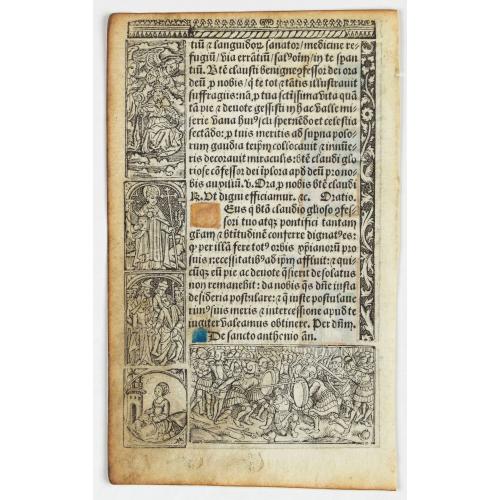 tiũ & languidoꝝ sanator/medicine re-
fugiũ/via errãtiũ/sal⁹oim/in te span
tiũ. Bt̃e claudi benigne ꝯfessor dei ora
deũ p nobis/q̃ te tot & tãtis illustrauit
suffragiis: nã ꝓ tua sctissima vita quã
tã pie & deuote gessisti in hac valle mi-
serie vana hui⁹ scli spernẽdo et celestia
sectãdo: ꝓ tuis meritis ad supna polo-
rum gaudia teip̃m collocauit & innũe-
ris decorauit miraculis: bt̃e claudi glo
riose cõfessor dei ĩplora apd deũ pro no
bis auxiliũ. V. Ora ꝓ nobis bt̃e claudi
R. Ut digni efficiamur. &c. Oratio.
Eus q̃ bt̃m claudio glioso ꝯfes-
sori tuo atqꝫ pontifici tantam
gr̃am & bt̃itudinẽ conferre dignat⁹ es:
ꝙ per illã fere tot⁹ orbis xp̃ianorũ pro
suis necessitatib⁹ ad ip̃m affluit: & qui
cũqꝫ eũ pie ac deuote q̃sierit desolatus
non remanebit: da nobis q̃s dñe iusta
desideria postulare: & q̃ iuste postulaue
rim⁹ suis meris & intercessione apud te
iugiter valeamus obtinere. Per dñm.
De sancto anthenio añ.